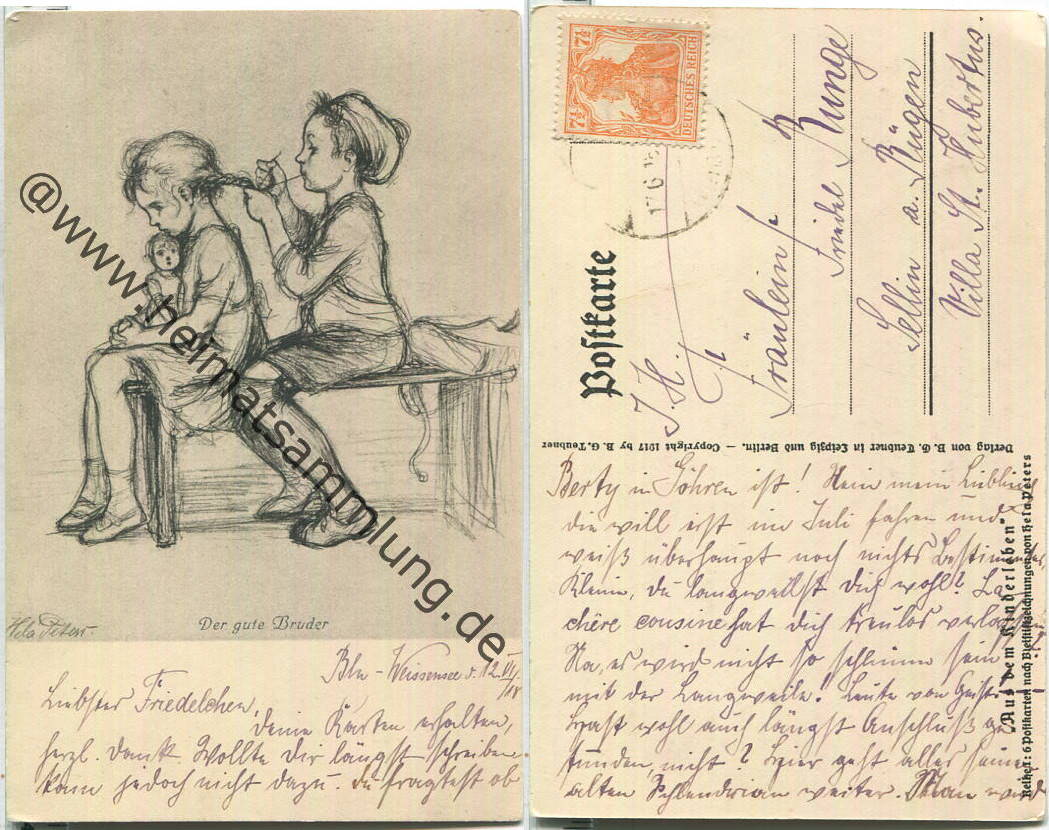 @www.heimatsammlung.de
Hela Peters.
Der gute Bruder
Bln-Weissensee d. 12. VI./18
Liebster Friedelchen,
deine Karten erhalten,
herzl. Dank. Wollte Dir längst schreiben
kam jedoch nicht dazu. Du fragtest ob
7½ 7½
DEUTSCHES REICH
17.6.18
Postkarte
Fräulein
Friedel Runge
Sellin a. Rügen
Villa St. Hubertus.
Verlag von B. G. Teubner in Leipzig und Berlin. — Copyright 1917 by B. G. Teubner
"Aus dem Kinderleben"
Reihe I: 6 Postkarten nach Bleistiftzeichnungen von Hela Peters
Berty in Göhren ist! Nein mein Liebling
die will erst im Juli fahren und
weiß überhaupt noch nichts Bestimmtes,
Kleine, du langweilst Dich wohl? La
chère cousine hat dich treulos verlassen
Na, es wird nicht so schlimm sein
mit der Langweile! Leute von Geist!
Hast wohl auch längst Anschluß ge
funden, nicht? Hier geht alles seinen
alten Schlendrian weiter. Man wird